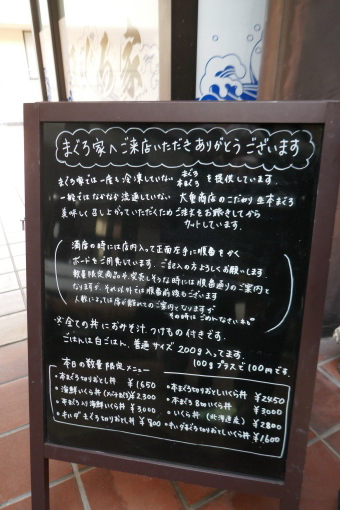 まぐろ家へご来店いただきありがとうございます
まぐろ家では一度も冷凍していない まぐろ 本まぐろ を提供しています。
一般ではなかなか流通していない 大量商店のこだわり生本まぐろ
美味しく召し上がっていただくためご注文をお聞きしてから
カットしています。
満席の時には店内入って正面左手に順番をかく
ボードをご用意しています。ご記入の方よろしくお願いします。
数量限定商品が完売しそうな時には順番通りのご案内と
なりますが、それ以外では順番前後もございます
人数によっては席が離れてのご案内となりますが
その時は ごめんなさいネ。
※全ての丼におみそ汁、つけもの付きです。
ごはんは白ごはん、普通サイズ 200g入ってます。
100gプラスで100円です。
本日の数量限定メニュー
・本まぐろ切りおとし丼 ¥1650
・海鮮いくら丼 ¥2300
・本まぐろ入り海鮮いくら丼 ¥3000
・キハダまぐろ切りおとし丼 ¥900
・本まぐろ切りおとしいくら丼 ¥2450
・本まぐろ いくら丼 ¥3000
・いくら丼(北海道産) ¥2800
・キハダまぐろ切りおとしいくら丼 ¥1600